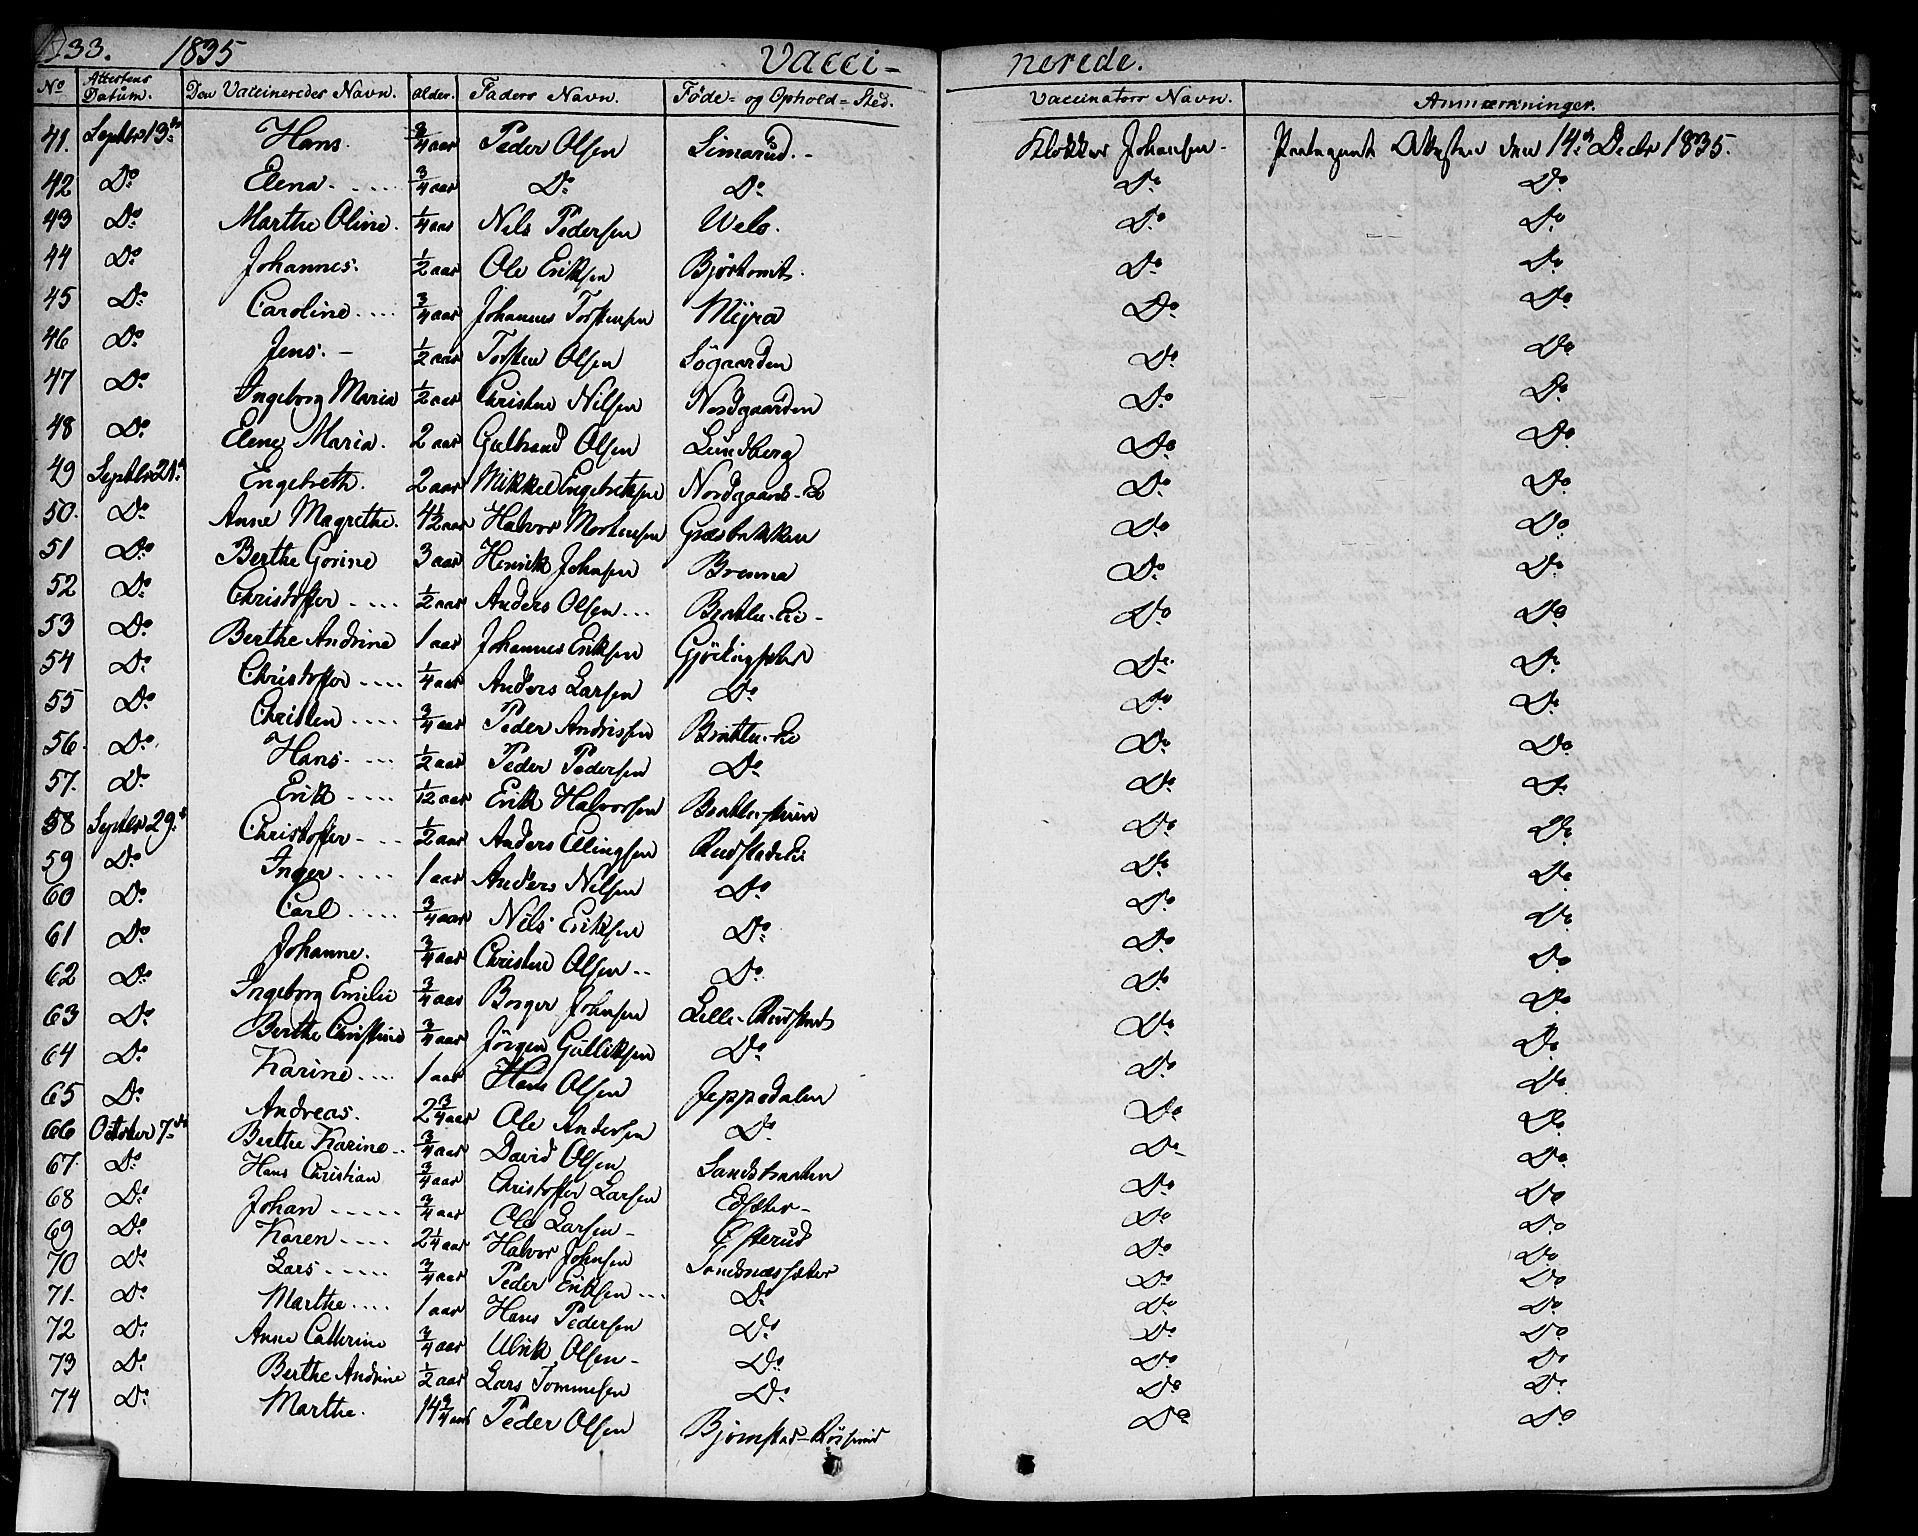 133. 1835 Vacci- nerede.
No Attestens Datum. Den Vaccineredes Navn. alder. Faders Navn. Føde- og Ophold-Sted. Vaccinators Navn. Anmærkninger.
41. Septbr 13de Hans. 3/4 aar Peder Olsen Simarud.- Klokker Johansen- Attester den 14de Decbr 1835.
42 Do Elena. .... 3/4 aar Do Do Do Do
43 Do Marthe Oline. 1/4 aar Nils Pedersen Welo. Do Do
44 Do Johannes. 1/2 aar Ole Eriksen Do Do
45 Do Caroline .... 3/4 aar Johannes Torstensen Myra Do Do
46 Do Jens. - 1/2 aar Torsten Olsen Søgaarden Do Do
47 Do Ingeborg Maria 1/2 aar Christen Nilsen Nordgaarden Do Do
48 Do Elene Maria. 2 aar Gulbrand Olsen Lundberg Do Do
49 Septbr 21de Engebreth. 2 aar Mikkel Engebretsen Nordgaards-Ei Do Do
50. Do Anne Magrethe. 4 1/2 aar Halvor Mortensen Græsbakken Do Do
51 Do Berthe Gorine 3 aar Henrik Johnsen Brenna Do Do
52 Do Christoffer .... 1/2 aar Anders Olsen... Bratlu-Ei- Do Do
53 Do Berthe Andrine 1 aar Johannes Eriksen Do Do
54 Do Christoffer .... 1/4 aar Anders Larsen Do Do Do
55 Do Christen .... 3/4 aar Peder Andrissen Bratlu-Ei Do Do
56. Do Hans. ... 1/2 aar Peder Pedersen Do Do Do
57. Do Erik .... 1/12 aar Erik Halvorsen Do Do
58 Septbr 29de Christoffer- ... 1/2 aar Anders Ellingsen Rudstadeie Do Do
59 Do Inger .... 1 aar Anders Nilsen Do Do Do
60 Do Carl .... 3/4 aar Nils Eriksen Do Do Do
61 Do Johanne. 3/4 aar Christen Olsen -- Do Do Do
62 Do Ingeborg Emilie 3/4 aar Borger Johnsen Lille-Rudstad Do Do
63 Do Berthe Christine 3/4 aar Jörgen Gulliksen Do Do Do
64 Do Karine .... 1 aar Hans Olsen Jeppedalen Do Do
65 Do Andreas. 2 3/4 aar Ole Andersen Do Do Do
66 October 7de Berthe Karine .. 3/4 aar David Olsen Sandbraaten Do Do
67. Do Hans Christian 3/4 aar Christoffer Larsen Edsæter- Do Do
68 Do Johan ..... 3/4 aar Ole Larsen- Østerud Do Do
69 Do Karen .... 2 1/4 aar Halvor Johnsen Sandnæssæter Do Do
70 Do Lars ..... 3/4 aar Peder Eriksen ... Do Do Do
71. Do Marthe .... 1 aar Hans Pedersen Do Do Do
72 Do Anne Cathrine 3/4 aar Ulrik Olsen- Do Do Do
73 Do Berthe Andrine 1/2 aar Lars Tommesen Do Do Do
74 Do Marthe. 14 3/4 aar Peder Olsen Do Do